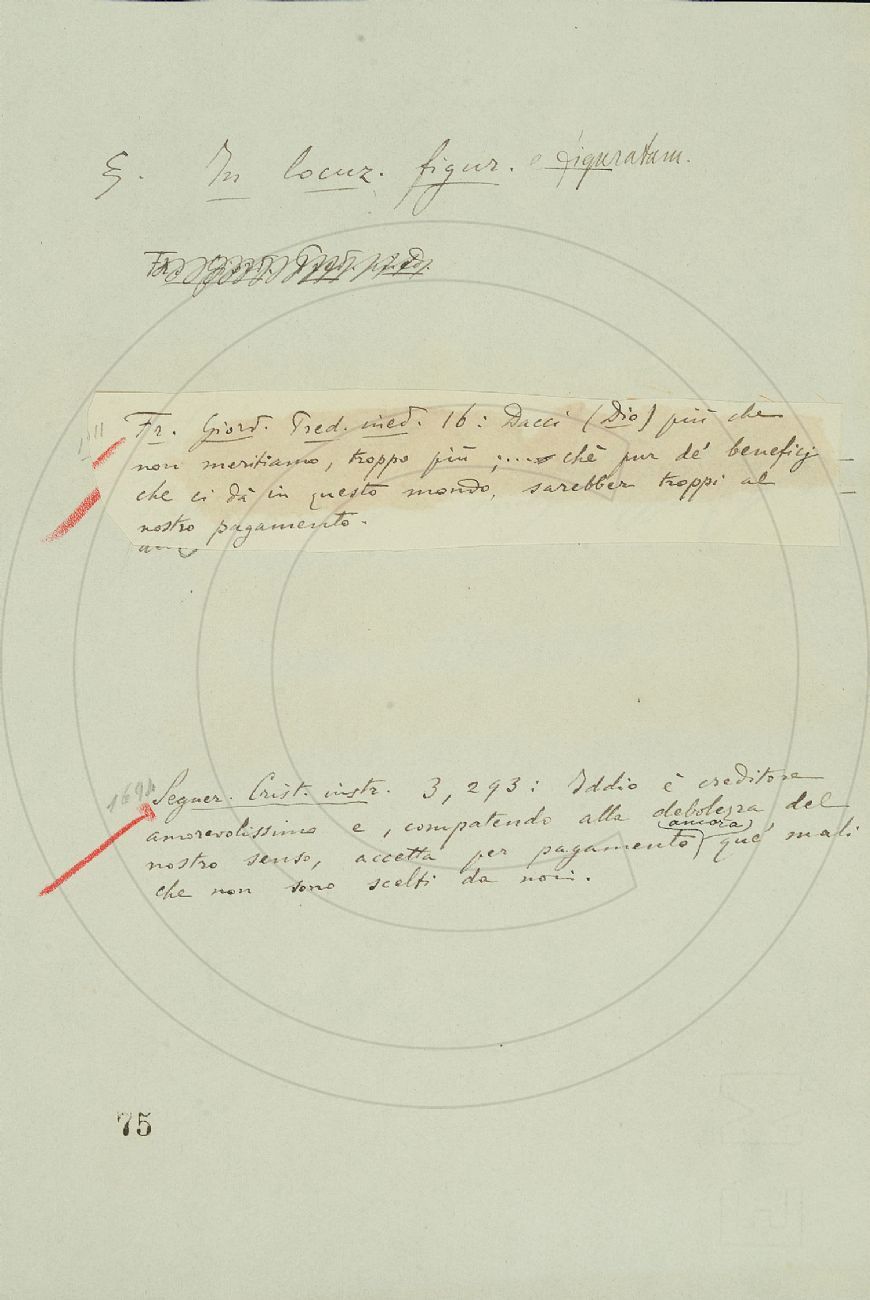 §. In locuz. figur. e figuratam.
Fr. Giord. Pred. ined. 16: Dacci (Dio) più che
non meritiamo, troppo più ;.... chè pur de' beneficj
che ci dà in questo mondo, sarebber troppi al
nostro pagamento.
1694
Segner. Crist. instr. 3, 293: Iddio è creditore
amorevolissimo e, compatendo alla debolezza del
nostro senso, accetta per pagamento (ancora) que' mali
che non sono scelti da noi.
75